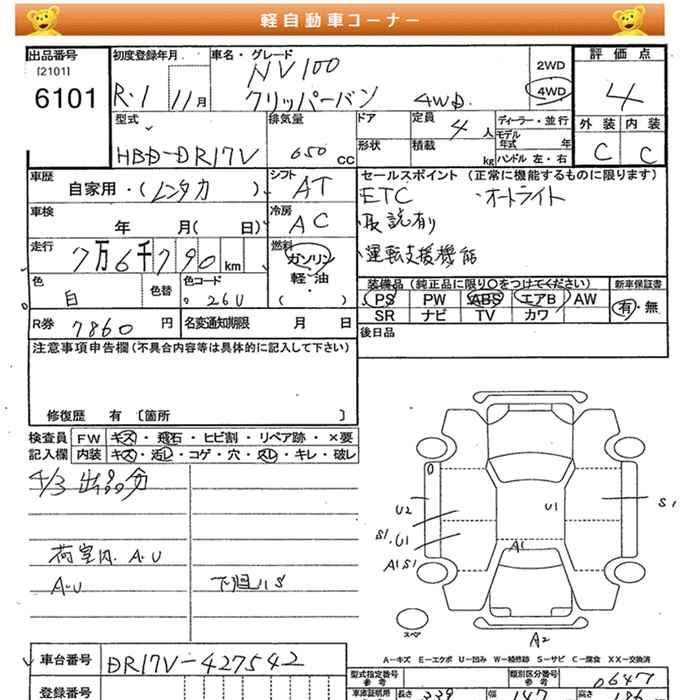 軽自動車コーナー
出品番号 初度登録年月 車名・グレード 2WD 評価点
[2101] NV100
6101 R.1 11月 クリッパーバン 4WD. 4WD 4
型式 排気量 ドア 定員 4人 ディーラー・並行 外装 内装
HBD-DR17V 650 CC 形状 積載 kg モデル年式 年 C C
ハンドル 左・右
車歴 シフト セールスポイント (正常に機能するものに限ります)
自家用・(レンタカ ) AT ETC ・オートライト
車検 冷房 ・取説有り
年 月( 日) AC ・運転支援機能
走行 燃料
7万6千790km ガソリン
軽・油
( ・ )
色 色替 色コード 装備品 (純正品に限り○をつけてください) 新車保証書
白 26U PS PW ABS エアB AW 有・無
SR ナビ TV カワ
R券 7860円 名変通知期限 月 日 後日品
注意事項申告欄 (不具合内容等は具体的に記入して下さい)
修復歴 有 〔箇所 〕
検査員 FW キズ・飛石・ヒビ割・リペア跡・×要
記入欄 内装 キズ・汚レ・コゲ・穴・スレ・キレ・破レ
4/3 出品分
荷室内 A.U
A.U 下廻りS
U2 U1 S1
S1.U1
A1S1 A1
スペア
A2
A-キズ E-エクボ U-凹み W-補修跡 S-サビ C-腐食 XX-交換済
車台番号 DR17V-427542
登録番号
型式指定番号 参考 類別区分番号 参考 0647
車庫証明用 長さ 339 幅 147 高さ